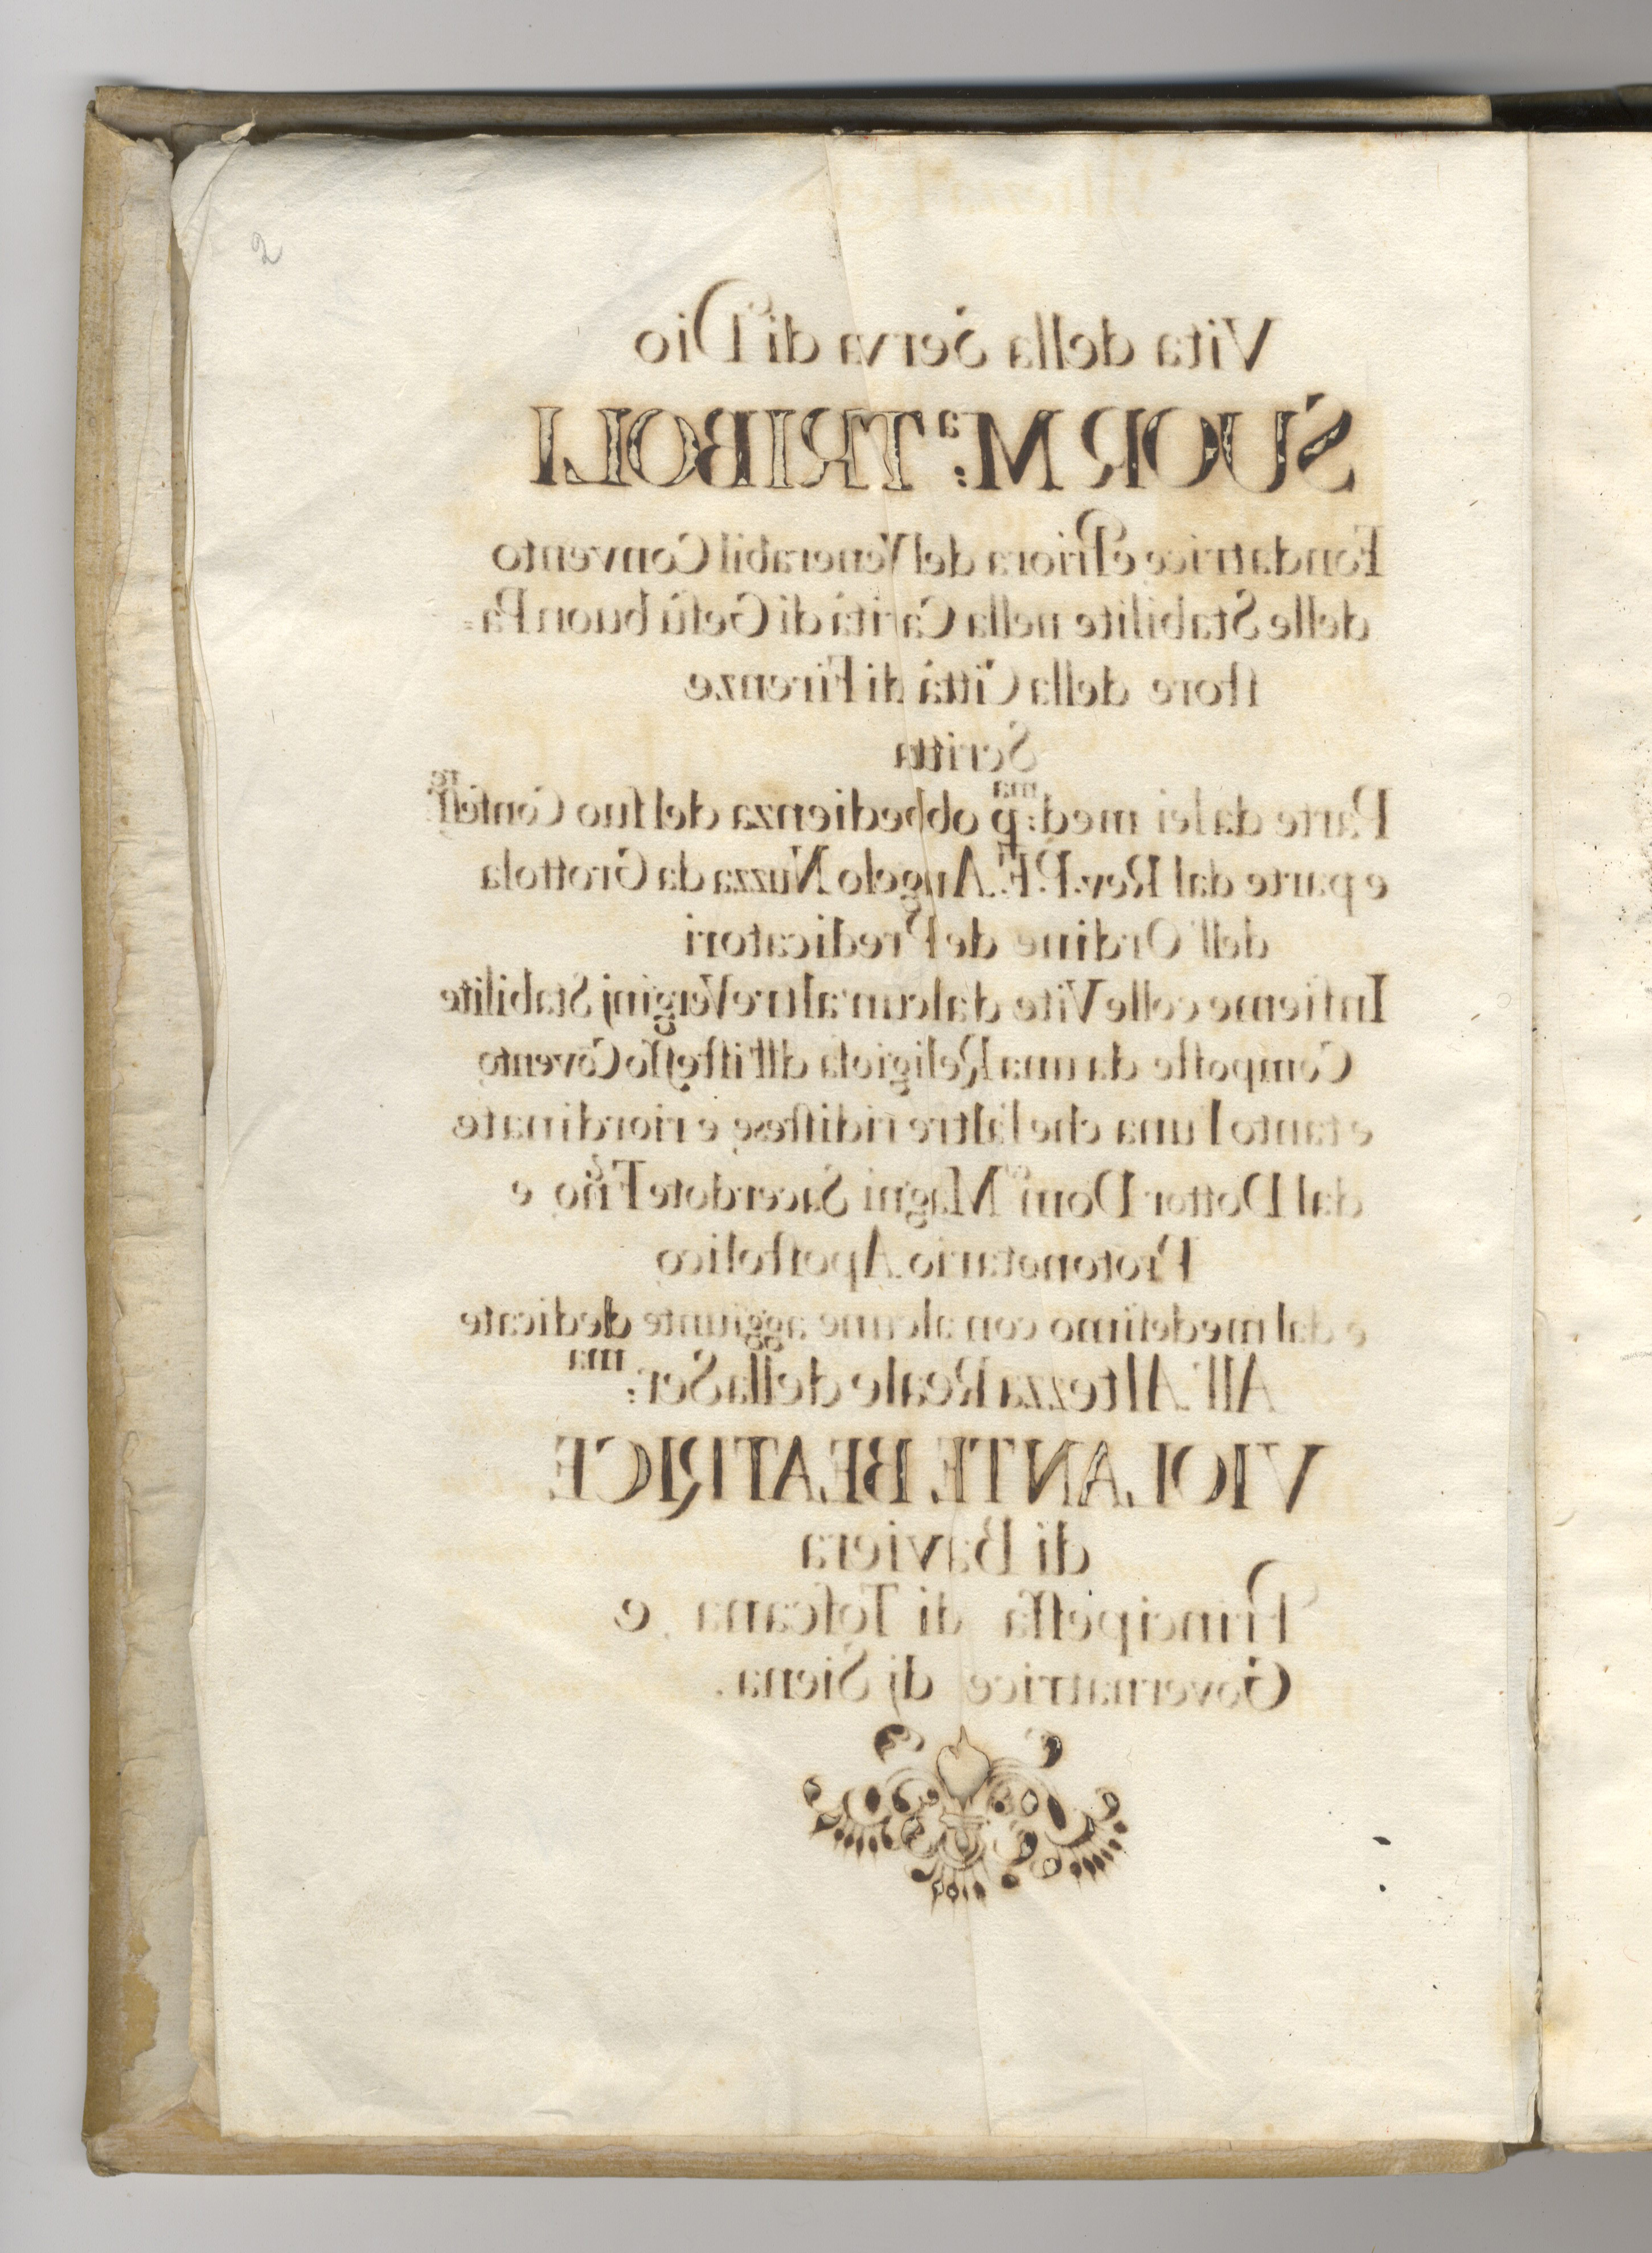 2
Vita della Serva di Dio
SUOR M:ª TRIBOLI
Fondatrice e Priora del Venerabil Convento
delle Stabilite nella Carità di Gesù buon Pa=
store della Città di Firenze
Scritta
Parte da lei med:ma p obbedienza del suo Confess.re
e parte dal Rev. P. F. Angelo Nuzza da Grottola
dell'Ordine de Predicatori
Insieme colle Vite d'alcun'altre Verginj Stabilite
Composte da una Religiosa dll'istesso Covento
e tanto l'una che l'altre ridistese e riordinate
dal Dottor Dom.co Magni Sacerdote e
Protonotario Apostolico
e dal medesimo con alcune aggiunte dedicate
All'Altezza Reale della Ser:ma
VIOLANTE BEATRICE
di Baviera
Principessa di Toscana e
Governatrice dj Siena.